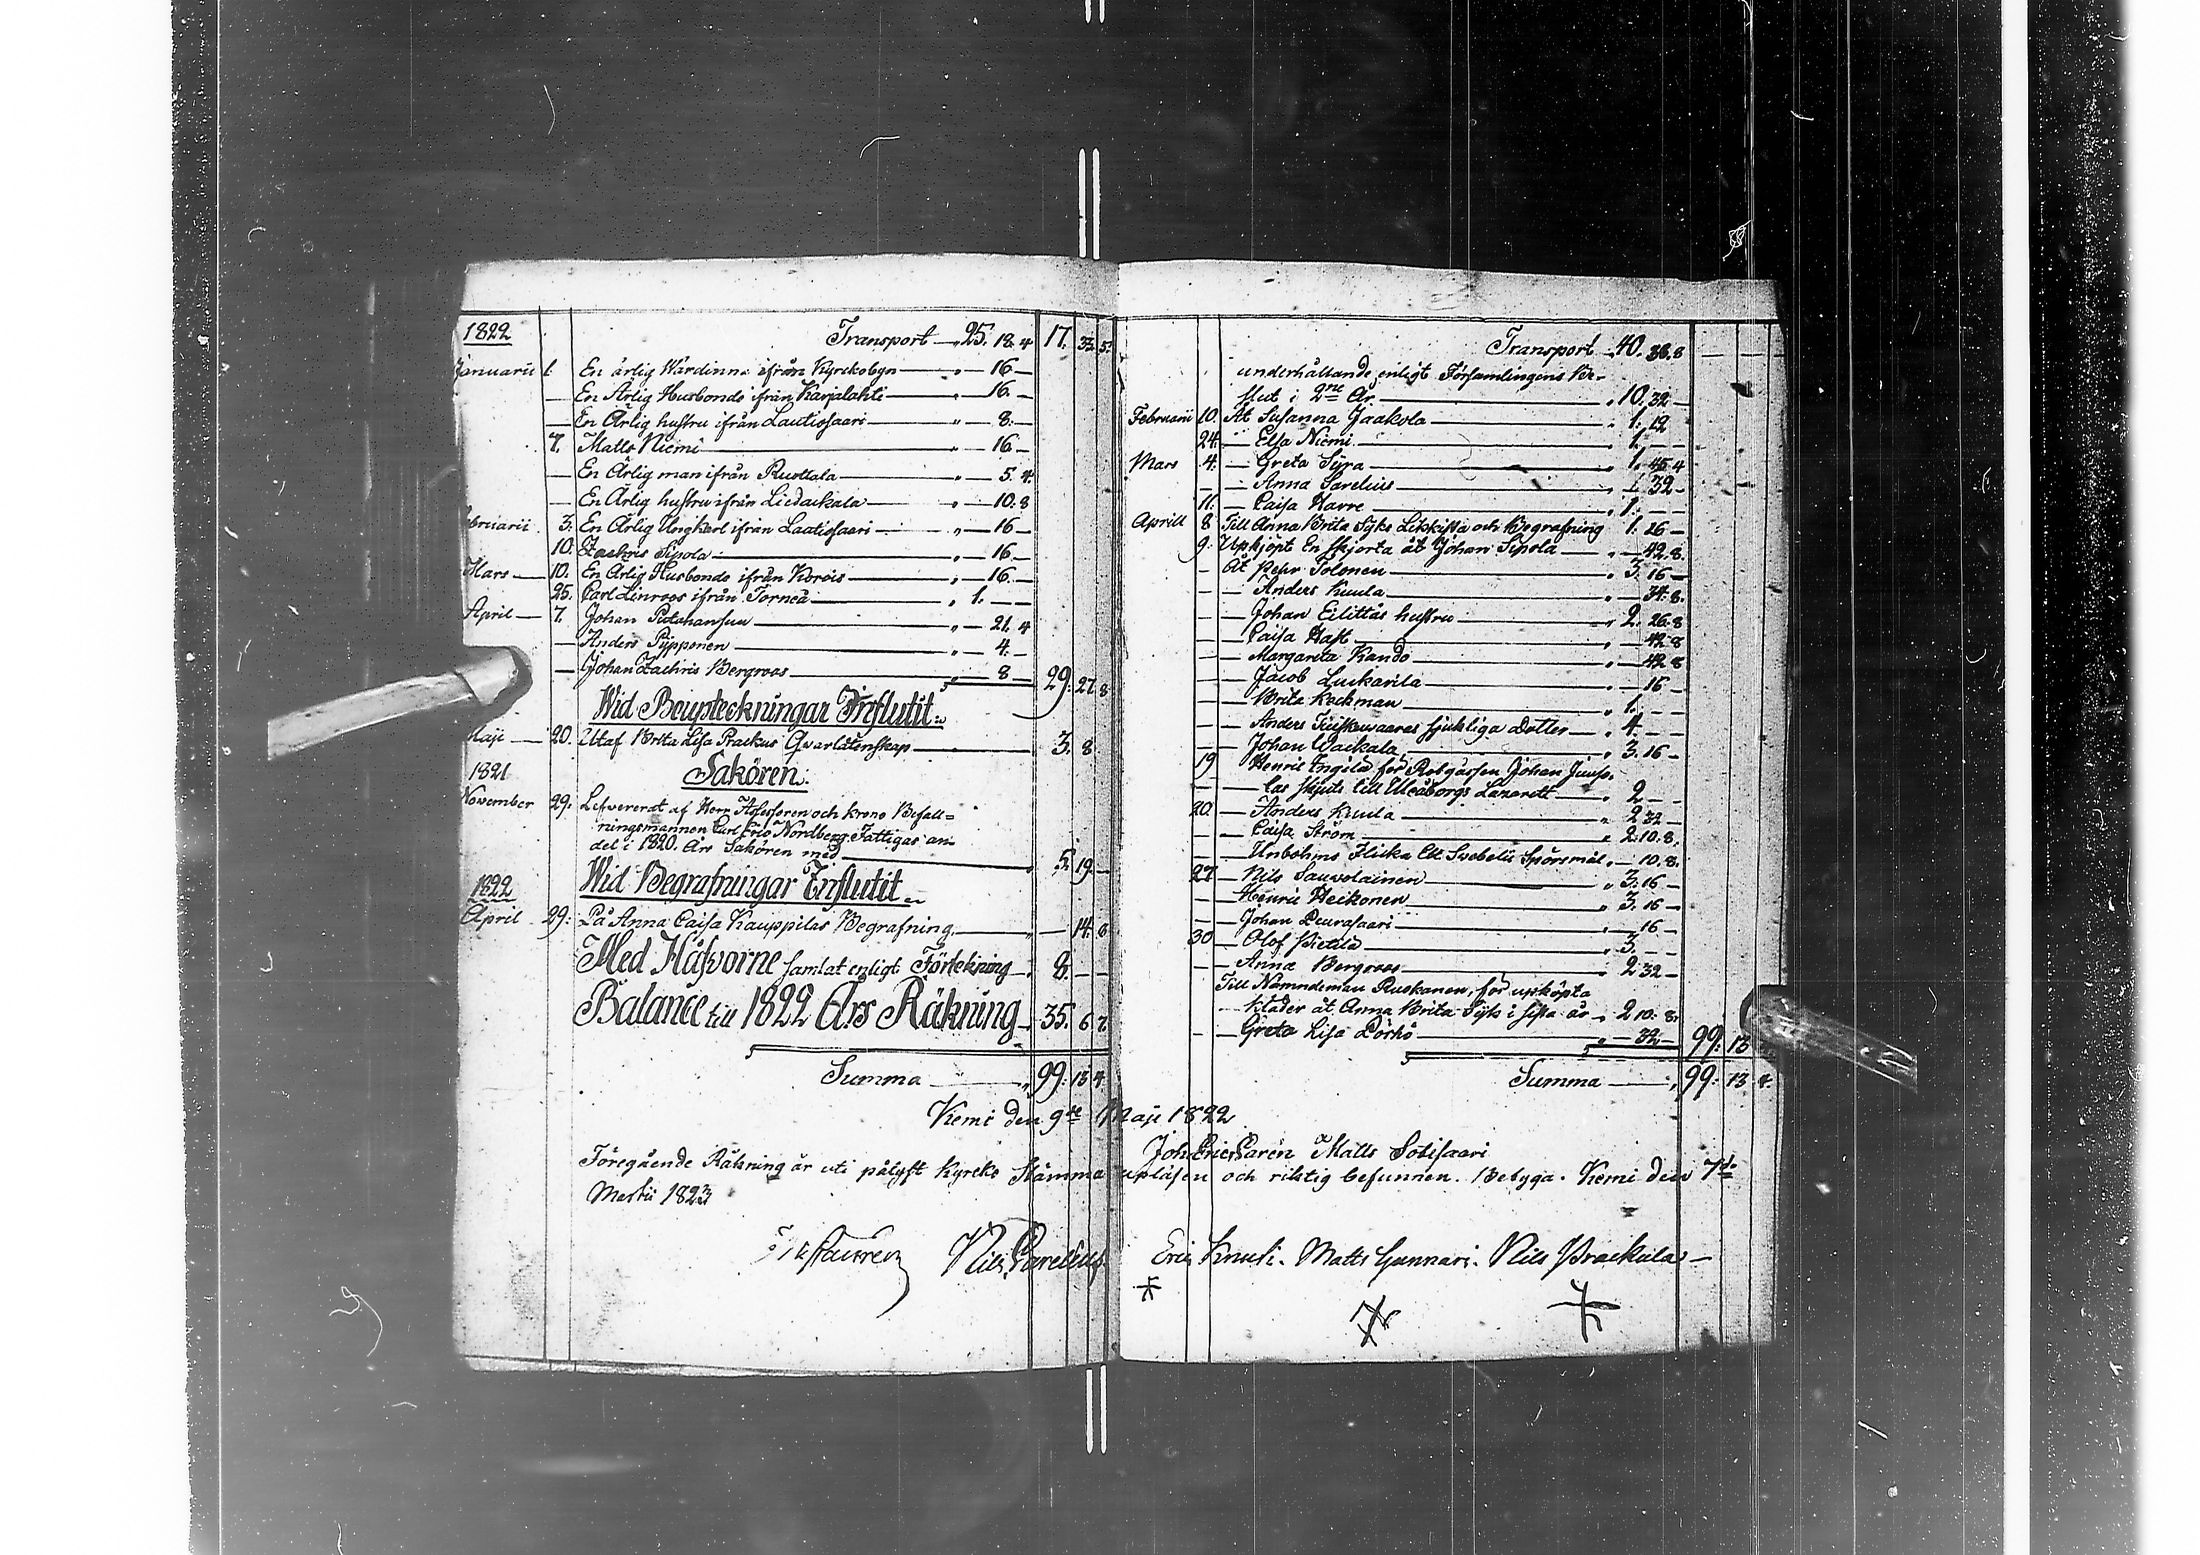 1822 Transport 25. 18. 4 17. 32. 5.
Januarii 1. En ärlig Wärdinna ifrån Kyrckobyn 16
En Ärlig Husbonde ifrån Karjalahti 16.
En Ärlig hustru ifrån Lautiosaari 8.
7. Matts Niemi 16
En Ärlig man ifrån Ruottala 5. 4.
En Ärlig hustru ifrån Liedackala 10. 8
bruarii 3. En Ärlig Ungkarl ifrån Lautiosaari 16
10. Zachris Sipola 16
Mars 10. En Ärlig Husbonde ifrån Korois 16.
25. Carl Linroos ifrån Torneå 1.
April 7. Johan 21. 4
Anders Pypponen 4.
Johan Zachris Bergroos 8 29. 27. 8
Wid Boupteckningar Influtit
Maji 20. Utaf Brita Lisa Prackus Qvarlåtenskap 3. 8
1821 Saköron.
November 29. Lefvereradt af Herr Assessoren och krono Befall=
ningsmannen Carl Eric Nordberg Fattigas an
del i 1820. Års Saköron med 5. 19.
1822 Wid Begrafningar Influtit
April 29. På Anna Caisa Kauppilas Begrafning 14. 8
Med Håfvorne samlat enligt Förtekning 8.
Balance till 1822 Års Räkning 35. 6 7.
Summa 99. 13 4.
Transport 40. 36. 8
underhållande enligt Församlingens Be-
slut i 2ne År 10. 32
Februarii 10. Åt Susanna Jaakola 1. 12
24. Elsa Niemi 1.
Mars 4. Greta Syra 1. 45 4
Anna Sarelius 1. 32
11. Caisa Harre 1.
Aprill 8 Till Anna Brita Syks Likkista och Begrafning 1. 26
9. Upkjöpt En skjorta åt Johan Sipola 42. 8.
Åt Pehr Tolonen 3. 16
Anders Kuula 34. 8.
Johan Eilittäs hustru 2. 26. 8
Caisa Haft 42 8
Margareta Kando 42 8
Jacob Luckarila 16
Brita Keckman 1.
Anders sjukliga dotter 4.
Johan Wackala 3. 16
19 Henric Engelä för Johan
las skjuts till Uleåborgs Lazarett 2
20. Anders Kuula 2 32
Caisa Ström 2. 10. 8.
Unbohms Flicka 10. 8.
27 Nils Sauvolainen 3. 16
Henric Heikonen 3. 16
Johan Peurasaari 16
30 Olof Pietilä 3.
Anna Bergroos 2 32
Till Nämndeman Ruckanen, för upköpta
kläder åt Anna Brita Syks i sista år 2 10. 8.
Greta Lisa Pörhö 32 99. 13
Summa 99. 13 4.
Kemi den 9de Maji 1822
Joh Eric Matts Sotisaari
Föregående Räkning är uti pålyst Kyrcko Stämma upläsen och riktig befunnen. Betyga. Kemi den 7de
Martii 1823
Nils Sarelius Eric Knuti. Matts Gunnari. Nils Prackala